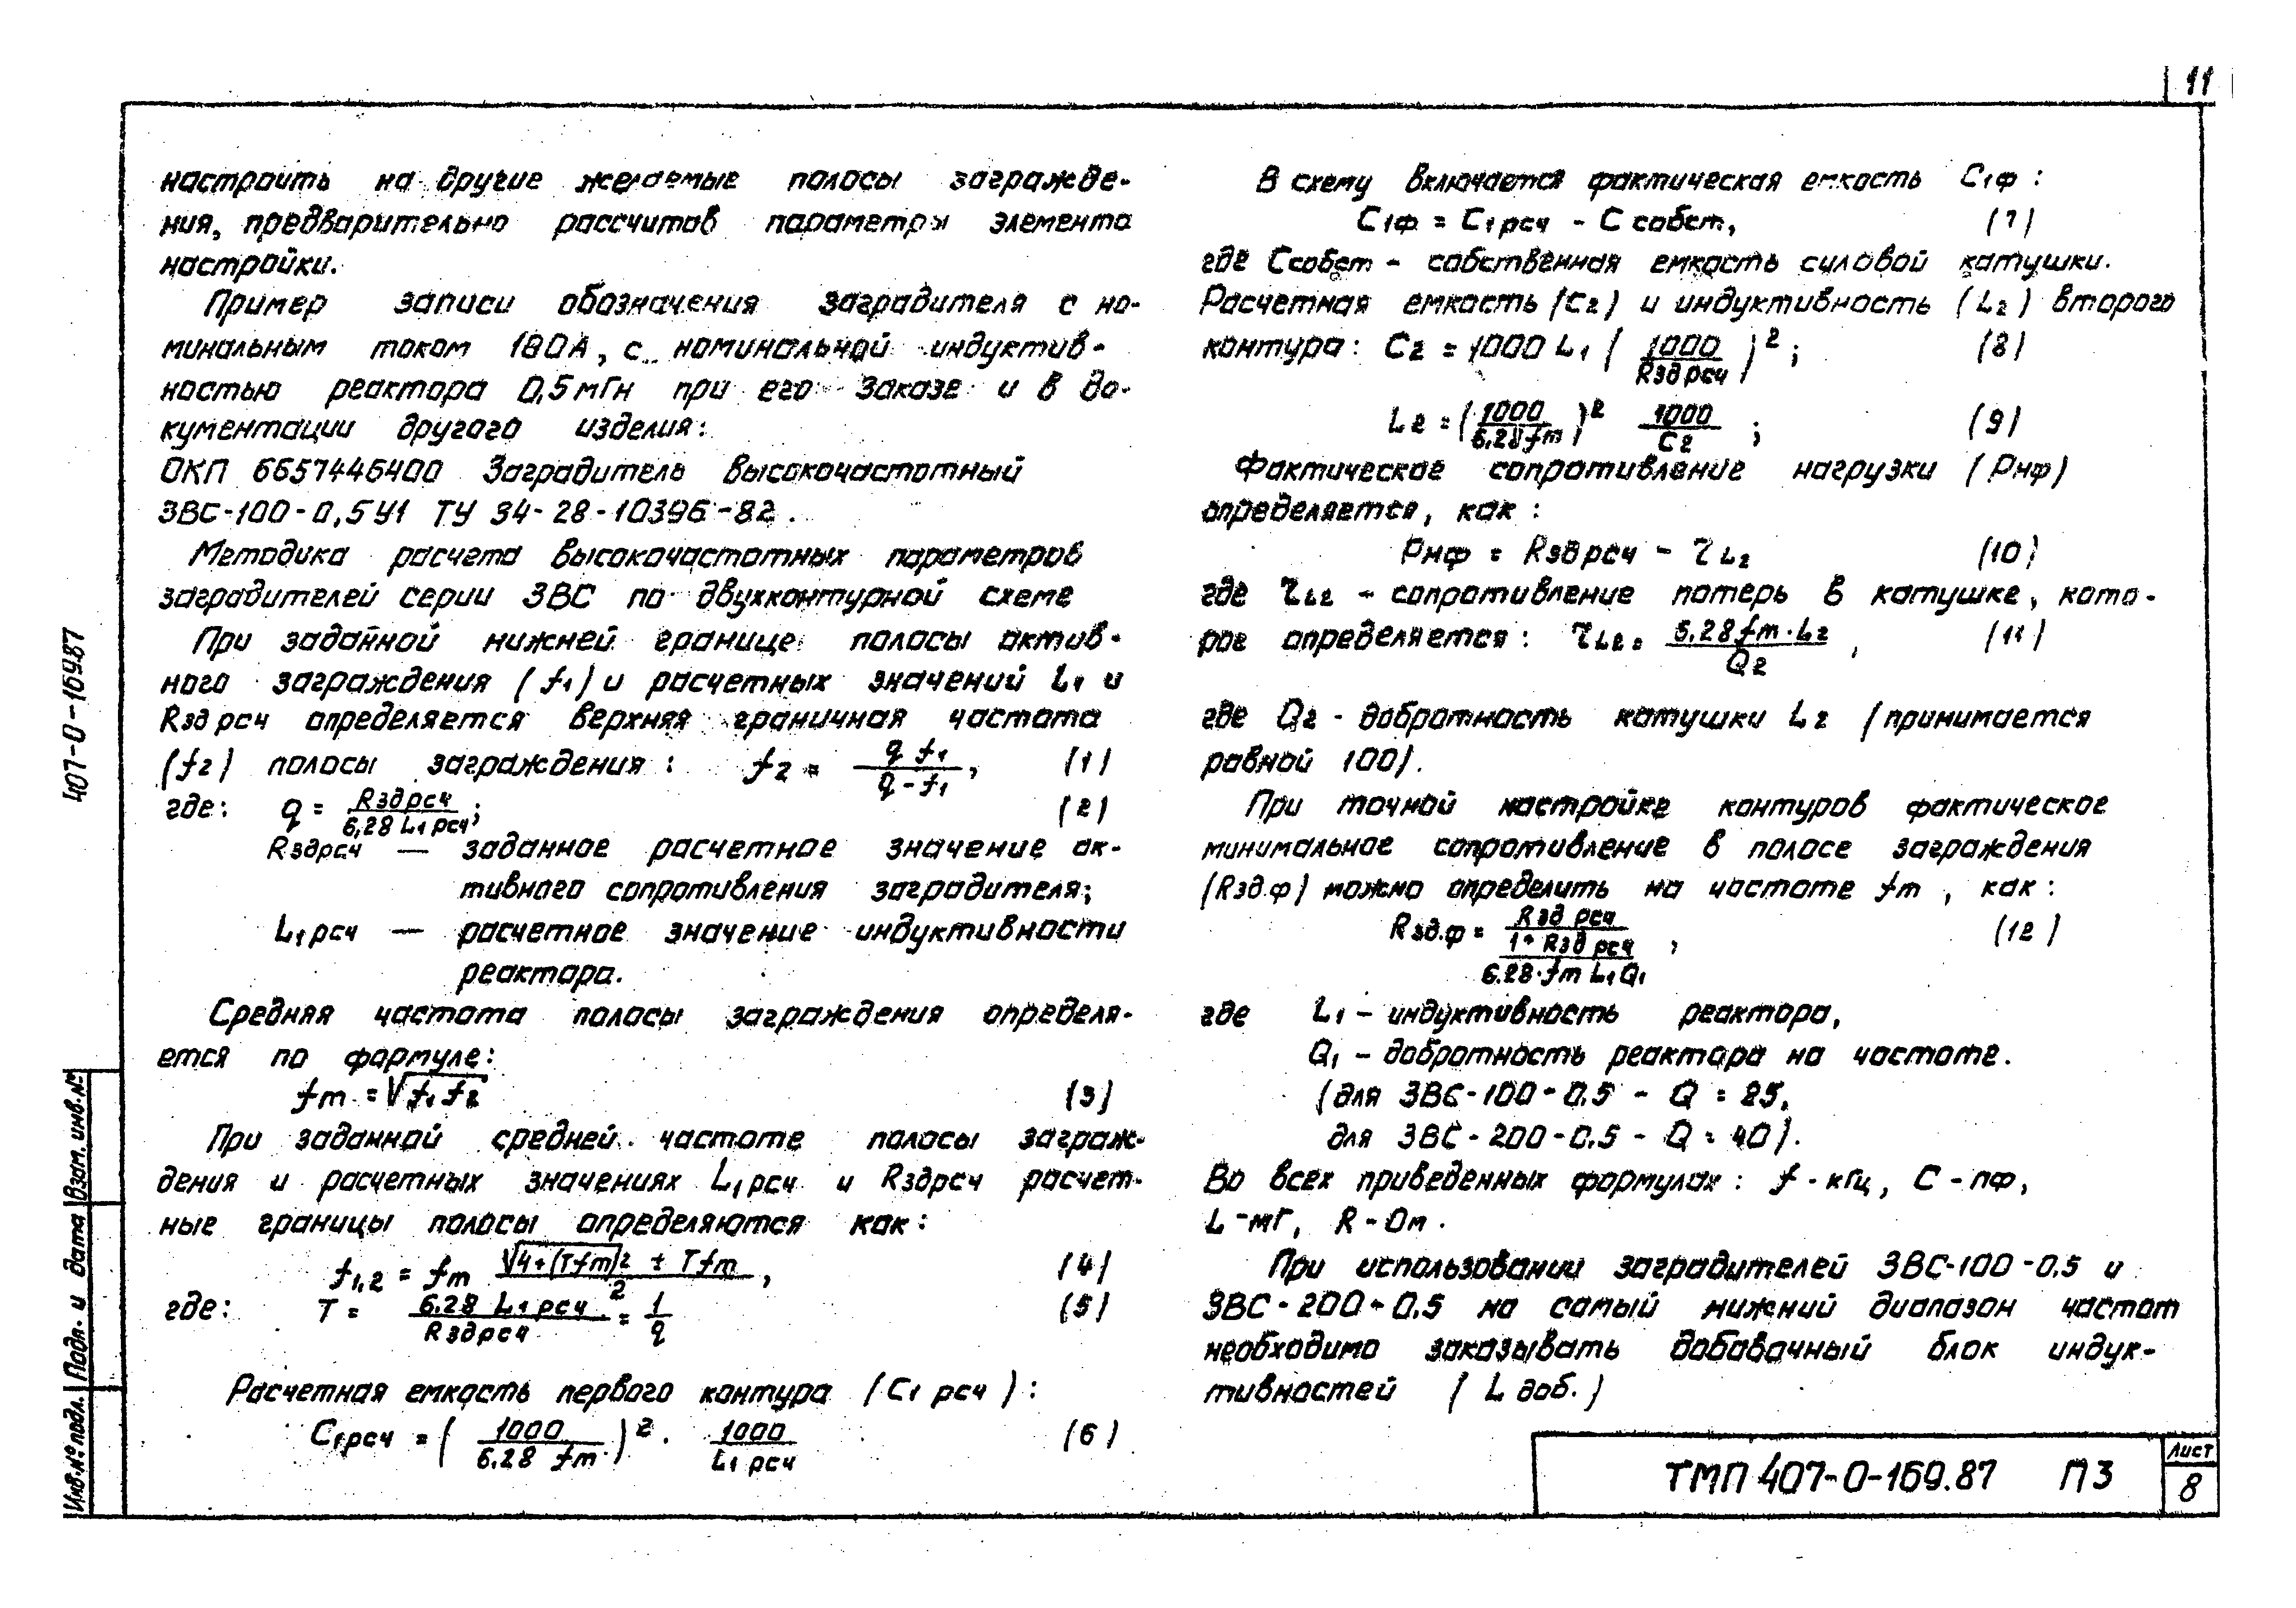 11
настроить на другие желаемые полосы загражде-
ния, предварительно рассчитав параметры элемента
настройки.
Пример записи обозначения заградителя с но-
минальным током 100А, с номинальной индуктив-
ностью реактора 0,5мГн при его заказе и в до-
кументации другого изделия:
ОКП 6657446400 Заградитель высокочастотный
ЗВС-100-0,5У1 ТУ 34-28-10396-82.
Методика расчета высокочастотных параметров
заградителей серии ЗВС по двухконтурной схеме
При заданной нижней границе полосы актив-
ного заграждения (f1) и расчетных значений L1 и
Rзд рсч определяется верхняя граничная частота
(f2) полосы заграждения: f2 = q f1 / (q - f1), (1)
где: q = Rзд рсч / 6,28 L1 рсч; (2)
Rзд рсч — заданное расчетное значение ак-
тивного сопротивления заградителя;
L1 рсч — расчетное значение индуктивности
реактора.
Средняя частота полосы заграждения определя-
ется по формуле:
fm = √f1 f2 (3)
При заданной средней частоте полосы заграж-
дения и расчетных значениях L1 рсч и Rзд рсч расчет-
ные границы полосы определяются как:
f1,2 = fm (√4+(Tfm)2 ± Tfm) / 2, (4)
где: T = 6.28 L1 рсч / Rзд рсч = 1 / q (5)
Расчетная емкость первого контура (C1 рсч):
C1 рсч = (1000 / 6.28 fm)2 · 1000 / L1 рсч (6)
В схему включается фактическая емкость C1ф:
C1ф = C1 рсч - C собст, (7)
где Cсобст - собственная емкость силовой катушки.
Расчетная емкость (C2) и индуктивность (L2) второго
контура: C2 = 1000 L1 (1000 / Rзд рсч)2; (8)
L2 = (1000 / 6,28 fm)2 1000 / C2; (9)
Фактическое сопротивление нагрузки (Rнф)
определяется, как:
Rнф = Rзд рсч - τL2 (10)
где τL2 - сопротивление потерь в катушке, кото-
рое определяется: τL2 = 6.28 fm · L2 / Q2, (11)
где Q2 - добротность катушки L2 (принимается
равной 100).
При точной настройке контуров фактическое
минимальное сопротивление в полосе заграждения
(Rзд.ф) можно определить на частоте fm, как:
Rзд.ф = Rзд рсч / (1+ Rзд рсч / 6.28·fm L1 Q1), (12)
где L1 - индуктивность реактора,
Q1 - добротность реактора на частоте.
(для ЗВС-100-0.5 - Q = 25,
для ЗВС-200-0.5 - Q = 40).
Во всех приведенных формулах: f - кГц, C - пф,
L - мГ, R - Ом.
При использовании заградителей ЗВС-100-0.5 и
ЗВС-200-0.5 на самый нижний диапазон частот
необходимо заказывать добавочный блок индук-
тивностей (L доб.)
ТМП 407-0-169.87 ПЗ
Лист
8
407-0-169.87
Взам. инв. №
Подп. и дата
Инв. № подл.